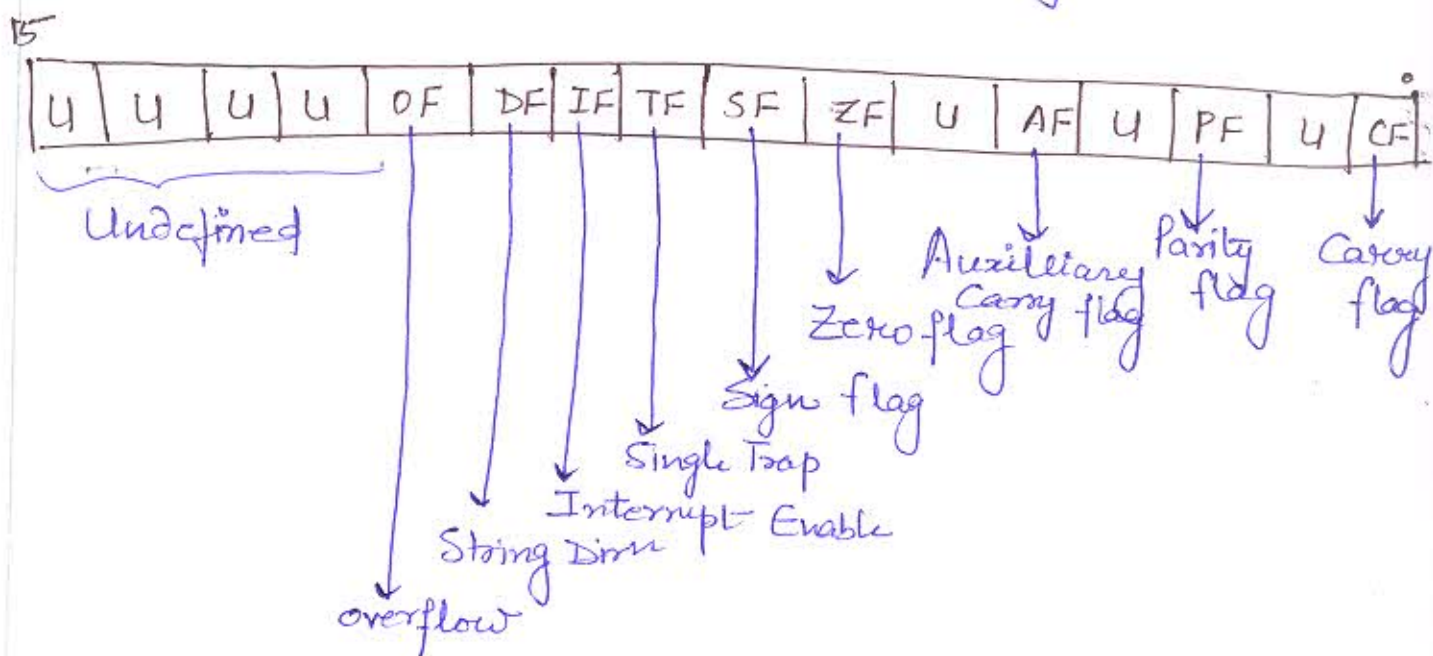 15
U U U U OF DF IF TF SF ZF U AF U PF U CF
Undefined
Auxilliary Carry flag
Parity flag
Carry flag
Zero flag
Sign flag
Single Trap
Interrupt Enable
String Dirn
overflow